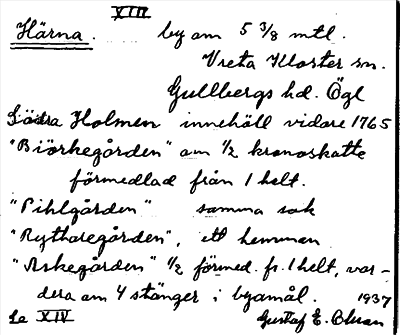 XIII
Härna. by om 5 3/8 mtl.
Vreta Kloster sn.
Gullbergs hd. Ögl
Södra Holmen innehöll vidare 1765
"Biörkegården" om 1/2 kronoskatte
förmedlad från 1 helt.
"Pihlgården" samma sak
"Rytharegården", ett hemman
"Askegården" 1/2 förmed. fr. 1 helt, var-
dera om 4 stänger i byamål. 1937
Se XIV Gustaf E.